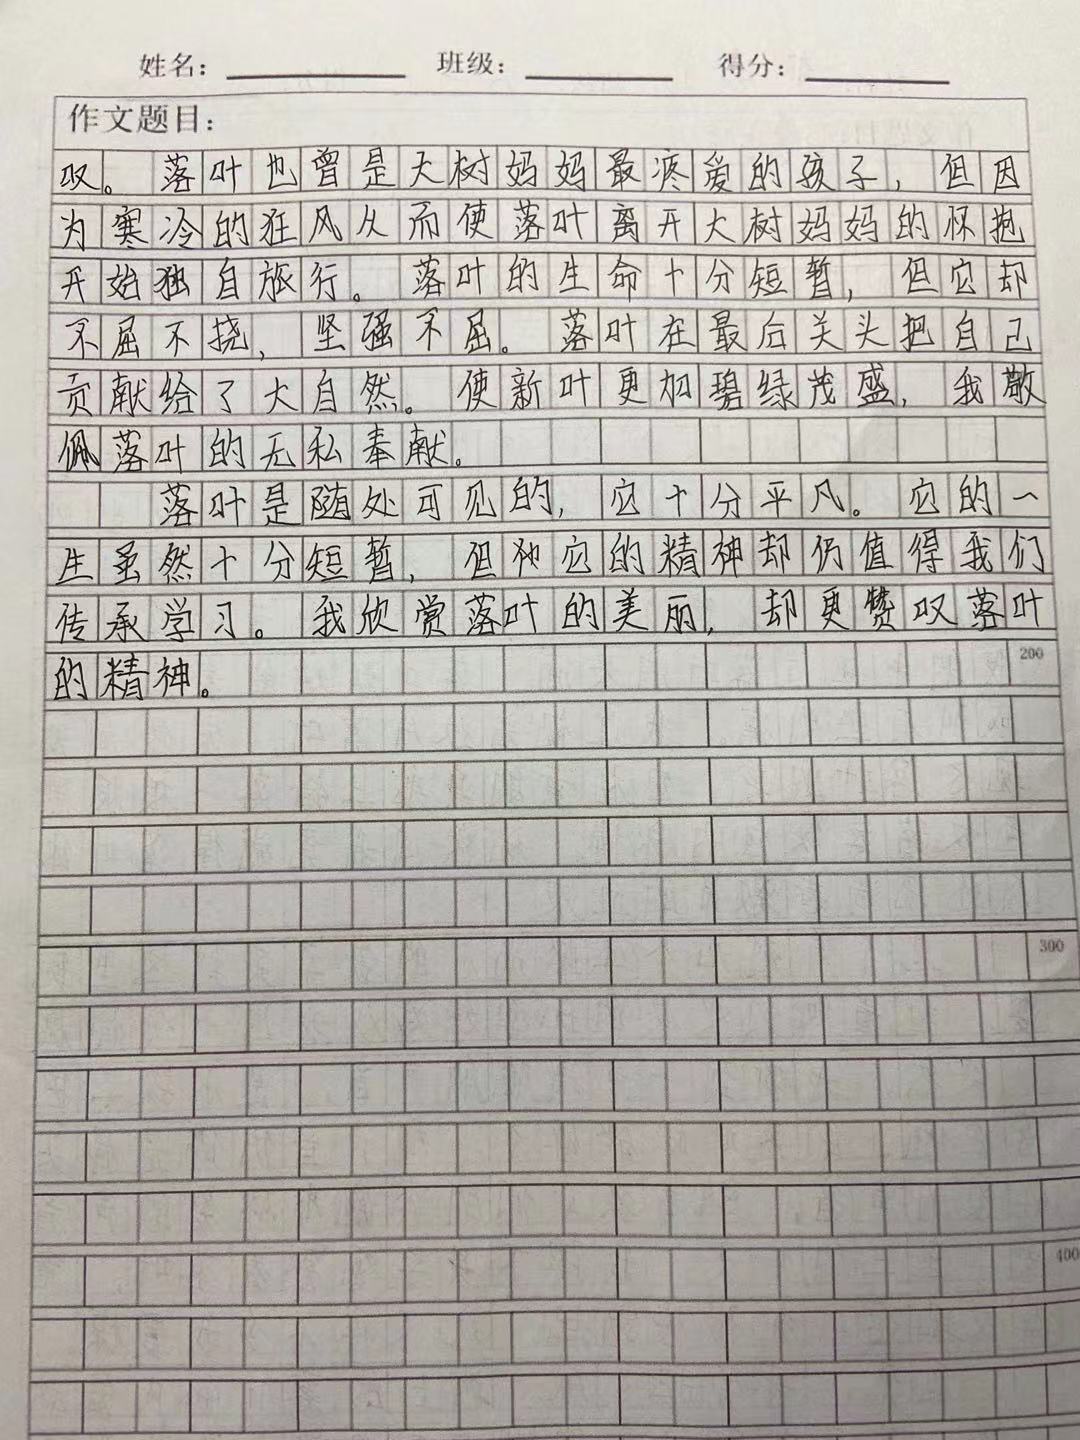 姓名： 班级： 得分：
作文题目：
叹。落叶也曾是大树妈妈最疼爱的孩子，但因
为寒冷的狂风从而使落叶离开大树妈妈的怀抱
开始独自旅行。落叶的生命十分短暂，但它却
不屈不挠，坚强不屈。落叶在最后关头把自己
贡献给了大自然。使新叶更加碧绿茂盛，我敬
佩落叶的无私奉献。
落叶是随处可见的，它十分平凡。它的一
生虽然十分短暂，但它的精神却仍值得我们
传承学习。我欣赏落叶的美丽，却更赞叹落叶
的精神。
200
300
400